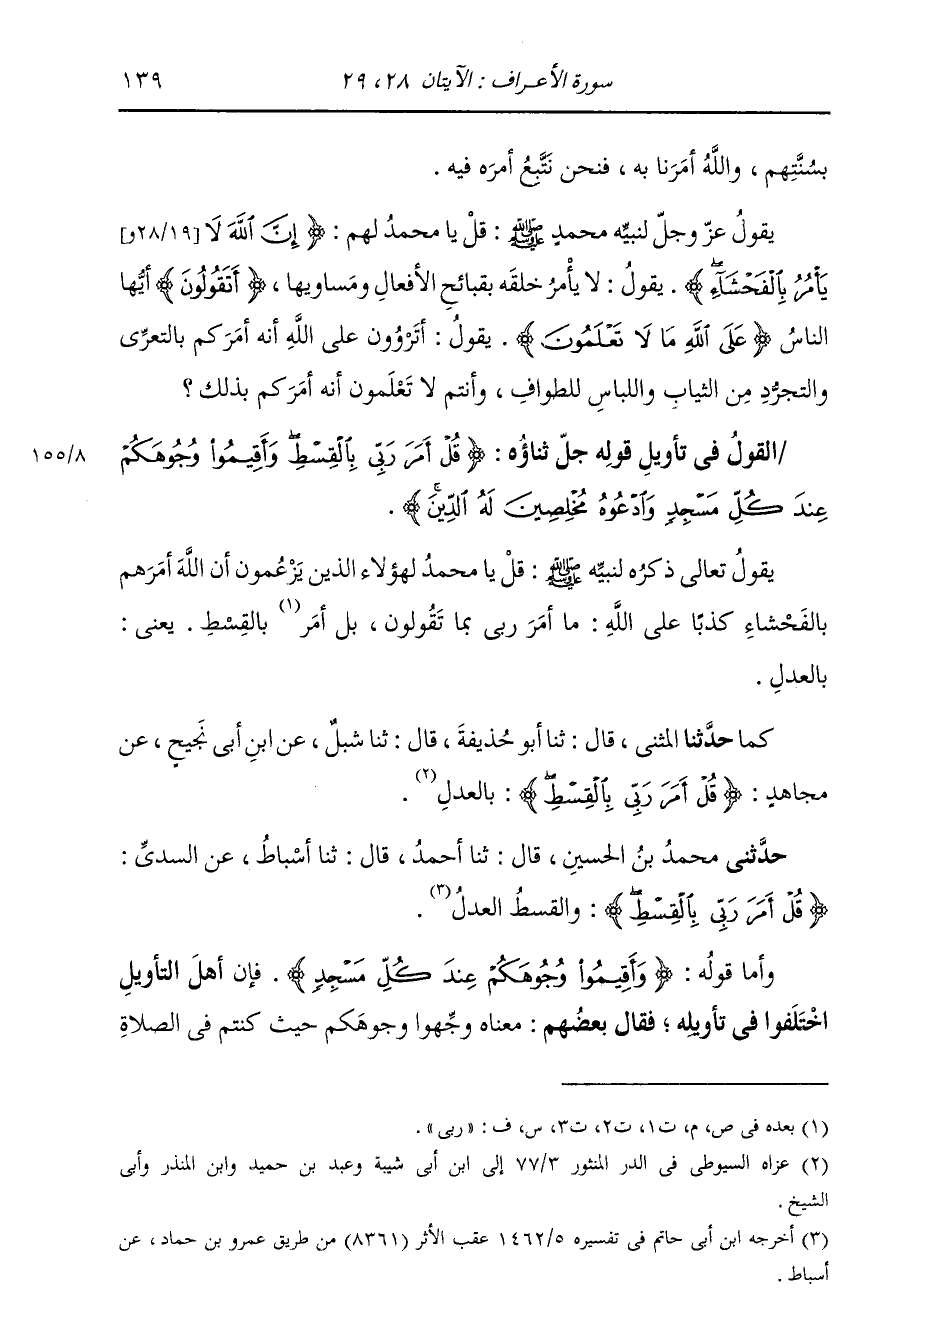 سورة الأعراف : الآيتان ٢٨ ، ٢٩ ١٣٩
بسُنَّتِهم ، واللَّهُ أمَرَنا به ، فنحن نَتَّبِعُ أمرَه فيه .
يقولُ عزّ وجلّ لنبيِّه محمدٍ ﷺ : قلْ يا محمدُ لهم : ﴿ إِنَّ ٱللَّهَ لَا [٢٨/١٩و]
يَأْمُرُ بِٱلْفَحْشَآءِۖ ﴾ . يقولُ : لا يأْمرُ خلقَه بقبائحِ الأفعالِ ومَساويها ، ﴿ أَتَقُولُونَ ﴾ أيُّها
الناسُ ﴿ عَلَى ٱللَّهِ مَا لَا تَعْلَمُونَ ﴾ . يقولُ : أتَرْوُون على اللَّهِ أنه أمَرَكم بالتعرِّى
والتجرُّدِ مِن الثيابِ واللباسِ للطوافِ ، وأنتم لا تَعْلَمون أنه أمَرَكم بذلك ؟
/القولُ فى تأويلِ قولِه جلّ ثناؤُه : ﴿ قُلْ أَمَرَ رَبِّى بِٱلْقِسْطِۖ وَأَقِيمُوا۟ وُجُوهَكُمْ ١٥٥/٨
عِندَ كُلِّ مَسْجِدٍ وَٱدْعُوهُ مُخْلِصِينَ لَهُ ٱلدِّينَۚ ﴾ .
يقولُ تعالى ذكرُه لنبيِّه ﷺ : قلْ يا محمدُ لهؤلاء الذين يَزْعُمون أن اللَّهَ أمَرَهم
بالفَحْشاءِ كذبًا على اللَّهِ : ما أمَرَ ربى بما تَقُولون ، بل أمَر(١) بالقِسْطِ . يعنى :
بالعدلِ .
كما حدَّثنا المثنى ، قال : ثنا أبو حُذيفةَ ، قال : ثنا شبلٌ ، عن ابنِ أبى نَجيحٍ ، عن
مجاهدٍ : ﴿ قُلْ أَمَرَ رَبِّى بِٱلْقِسْطِۖ ﴾ : بالعدلِ(٢) .
حدَّثنى محمدُ بنُ الحسينِ ، قال : ثنا أحمدُ ، قال : ثنا أسْباطُ ، عن السدىِّ :
﴿ قُلْ أَمَرَ رَبِّى بِٱلْقِسْطِۖ ﴾ : والقسطُ العدلُ(٣) .
وأما قولُه : ﴿ وَأَقِيمُوا۟ وُجُوهَكُمْ عِندَ كُلِّ مَسْجِدٍ ﴾ . فإن أهلَ التأويلِ
اخْتَلَفوا فى تأويلِه ؛ فقال بعضُهم : معناه وجِّهوا وجوهَكم حيث كنتم فى الصلاةِ
(١) بعده فى ص، م، ت١، ت٢، ت٣، س، ف : « ربى » .
(٢) عزاه السيوطى فى الدر المنثور ٧٧/٣ إلى ابن أبى شيبة وعبد بن حميد وابن المنذر وأبى
الشيخ .
(٣) أخرجه ابن أبى حاتم فى تفسيره ١٤٦٢/٥ عقب الأثر (٨٣٦١) من طريق عمرو بن حماد ، عن
أسباط .